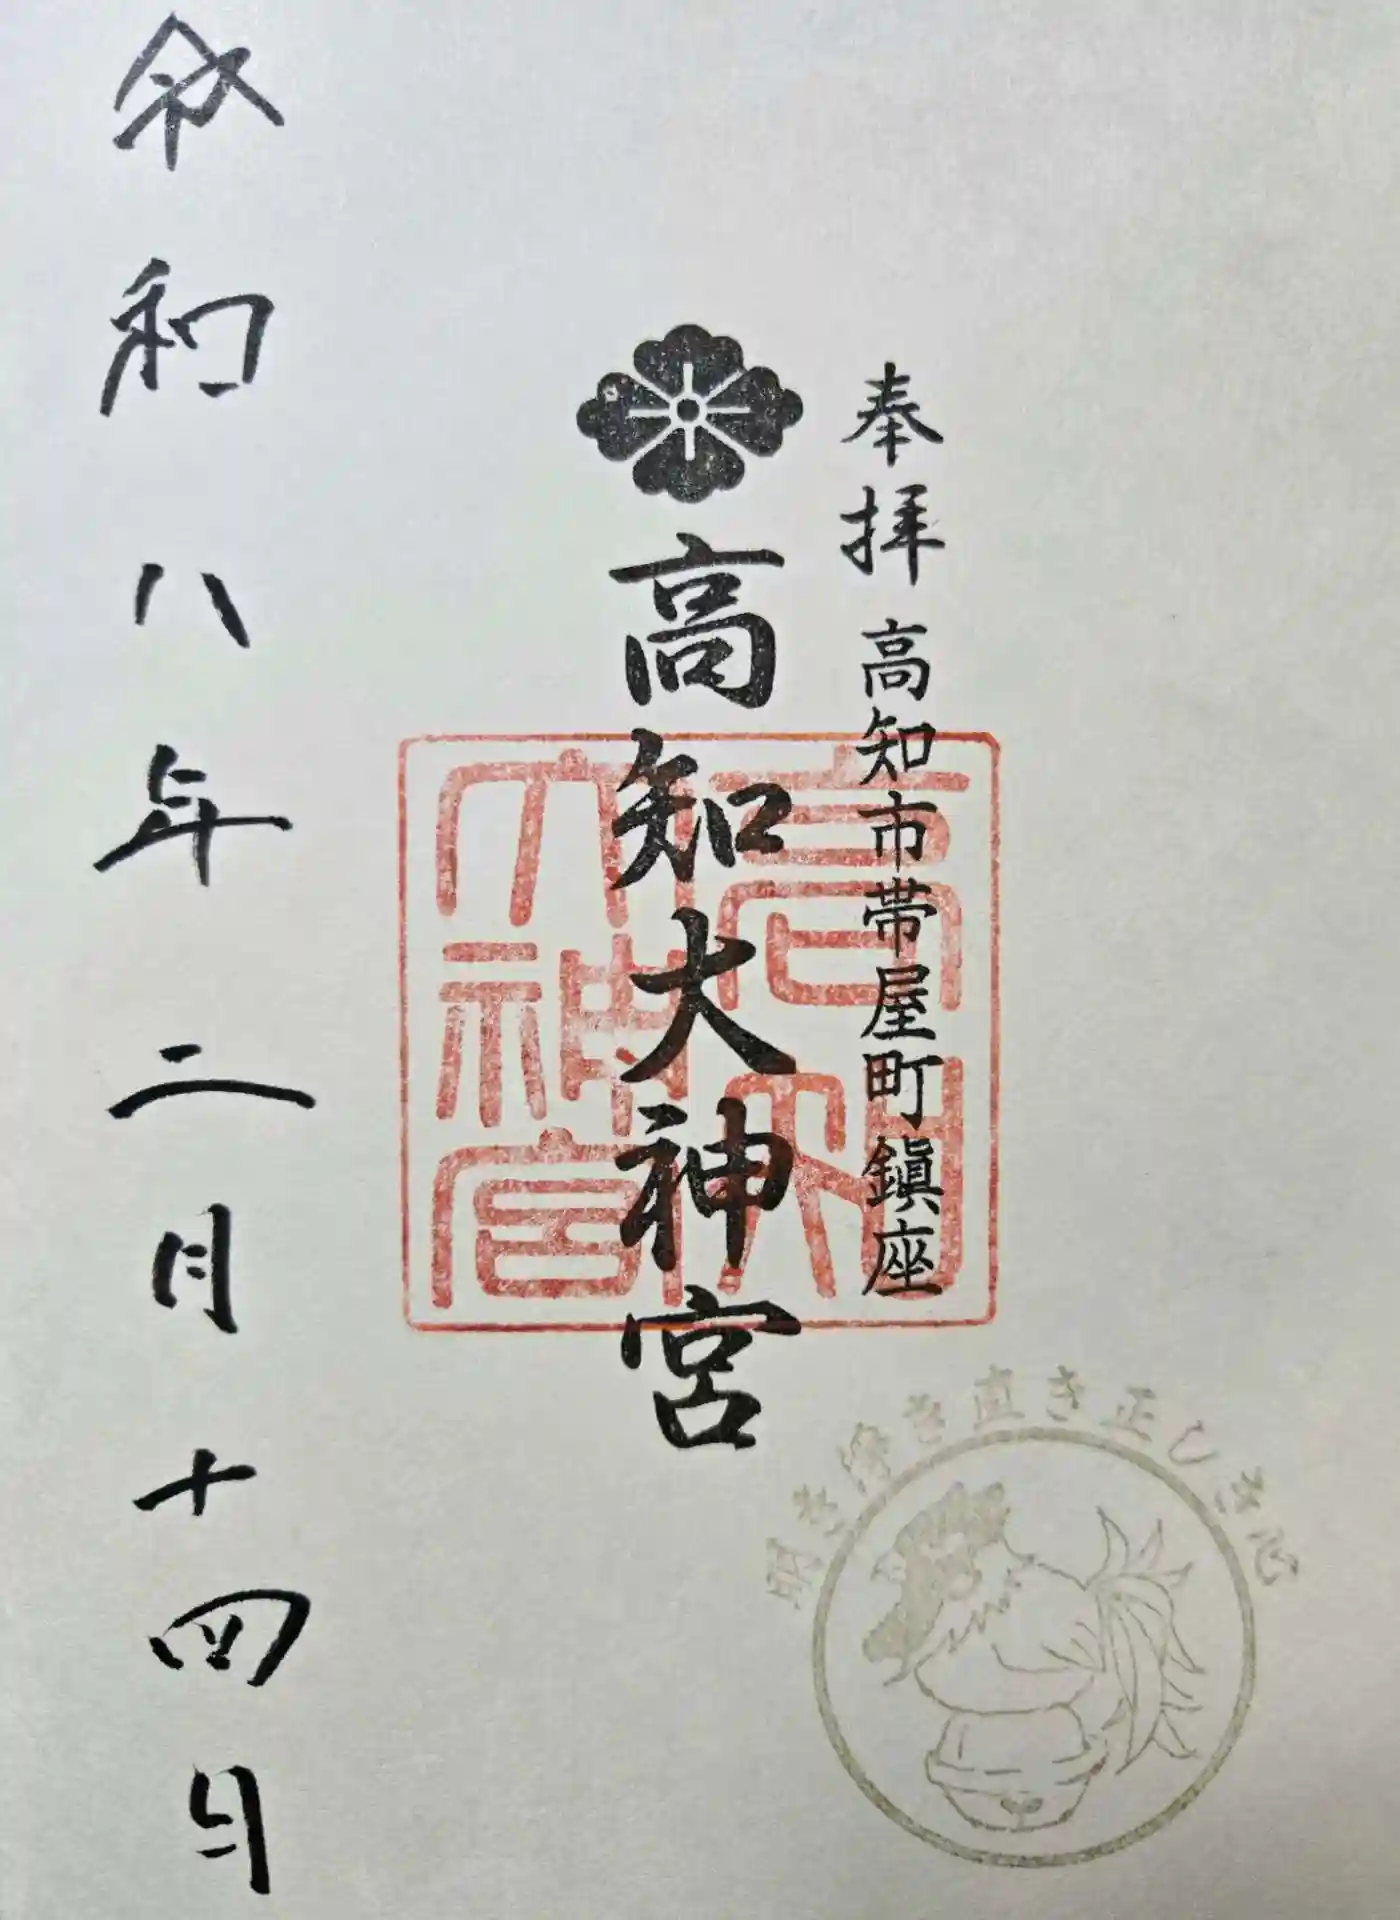 奉拝 高知市帯屋町鎮座
高知大神宮
高知大神宮
令和八年二月十四日
明き浄き直き正しき心